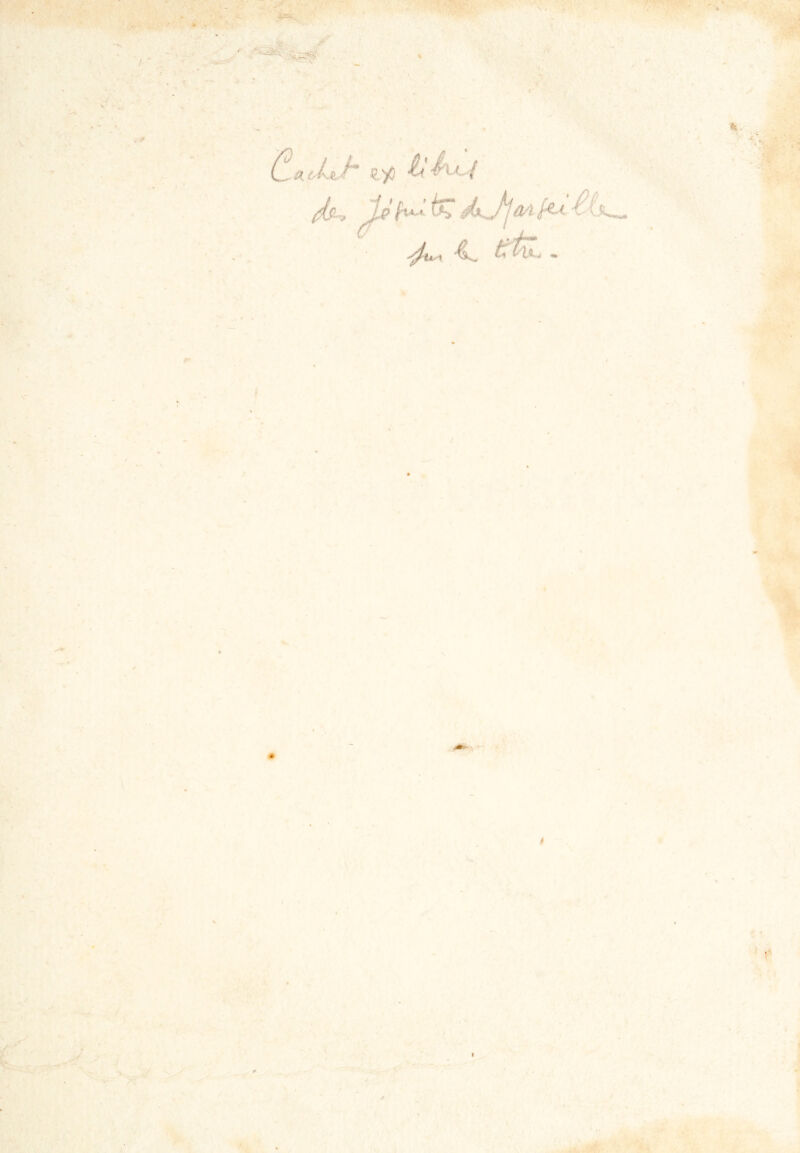 Cachet ex libris
des Jésuites de Marseille
sur le titre.